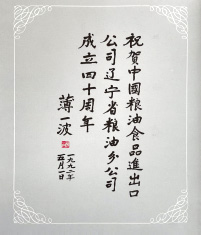 祝賀中國粮油食品進出口
公司辽宁省粮油分公司
成立四十周年
薄一波
一九九二年
五月一日